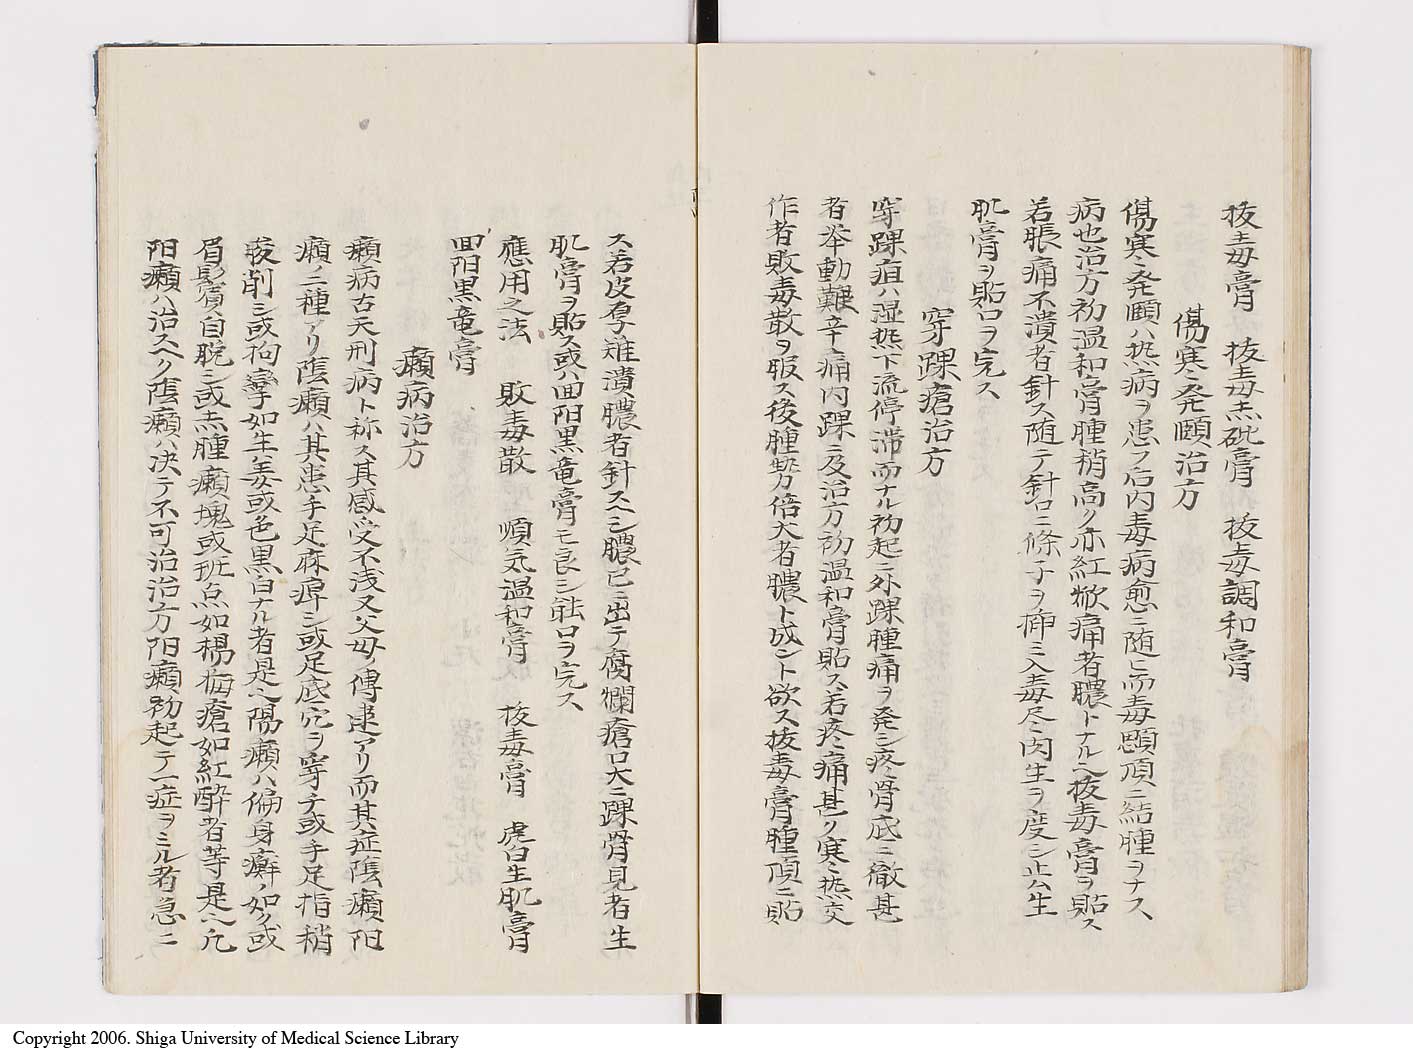 抜毒膏　抜毒赤砒膏　抜毒調和膏
傷寒発頤治方
傷寒発頤ハ热病ヲ患フ后内毒病愈ニ随ヒ而毒腮頂ニ結腫ヲナス、
病也治方初温和膏腫稍高ク赤紅焮痛者膿トナル也抜毒膏ヲ貼ス
若脹痛不潰者針ス随テ針口ニ條子ヲ挿ミ入毒尽肉生ヲ度シ止ム生
肌膏ヲ貼口ヲ完ス
穿踝瘡治方
穿踝疽ハ湿热下流停滞而ナル初起ニ外踝腫痛ヲ発シ疼骨底ニ徹甚
者挙動難辛痛内踝ニ及治方初温和膏貼ス若疼痛甚ク寒热交
作者敗毒散ヲ服ス後腫勢倍大者膿ト成ント欲ス抜毒膏腫頂ニ貼
ス若皮厚難潰膿者針スヘシ膿已ニ出テ腐爛瘡口大ニ踝骨見者生
肌膏ヲ貼ス或ハ回阳黒竜膏モ良シ能口ヲ完ス
應用之法　敗毒散　順気温和膏　抜毒膏　虎白生肌膏
回阳黒竜膏
癩病治方
癩病古天刑病ト称ス其感受不浅又父母ノ傳逮アリ而其症陰癩阳
癩ノ二種アリ陰癩ハ其患手足麻痺シ或足底穴ヲ穿チ或手足指稍
酸削シ或拘攣如生姜或色黒白ナル者是也陽癩ハ偏身癬ノ如ク或
眉鬚自脱シ或赤腫癩塊或班点如楊梅瘡如紅酔者等是也凡
阳癩ハ治スヘク陰癩ハ决テ不可治治方阳癩初起テ一症ヲミル者急ニ
Copyright 2006. Shiga University of Medical Science Library